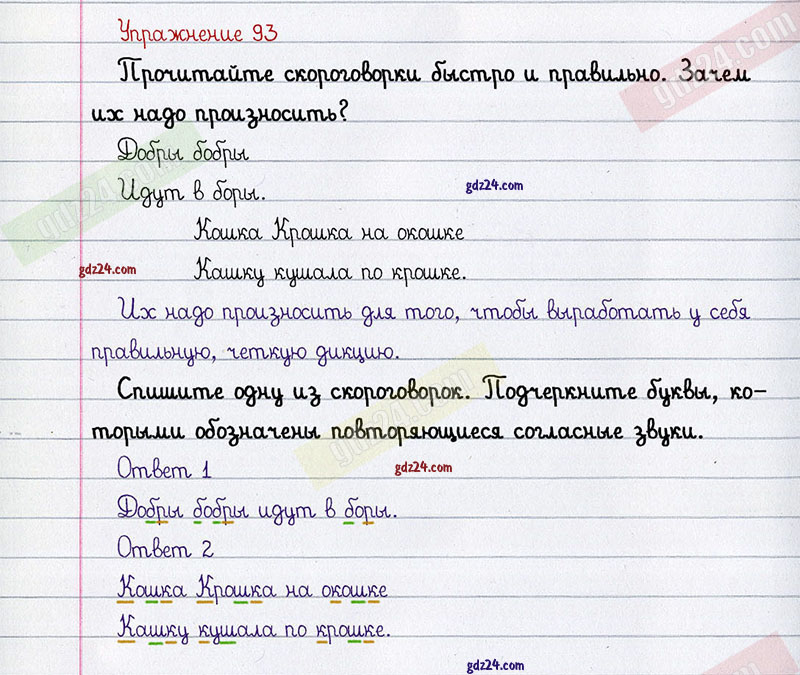 Упражнение 93
Прочитайте скороговорки быстро и правильно. Зачем
их надо произносить?
Добры бобры
Идут в боры.
gdz24.com
Кашка Крашка на окашке
gdz24.com
Кашку кушала по крашке.
Их надо произносить для того, чтобы выработать у себя
правильную, четкую дикцию.
Спишите одну из скороговорок. Подчеркните буквы, ко-
торыми обозначены повторяющиеся согласные звуки.
Ответ 1
gdz24.com
Добры бобры идут в боры.
Ответ 2
Кашка Крашка на окашке
Кашку кушала по крашке.
gdz24.com
gdz24.com
gdz24.com
gdz24.com